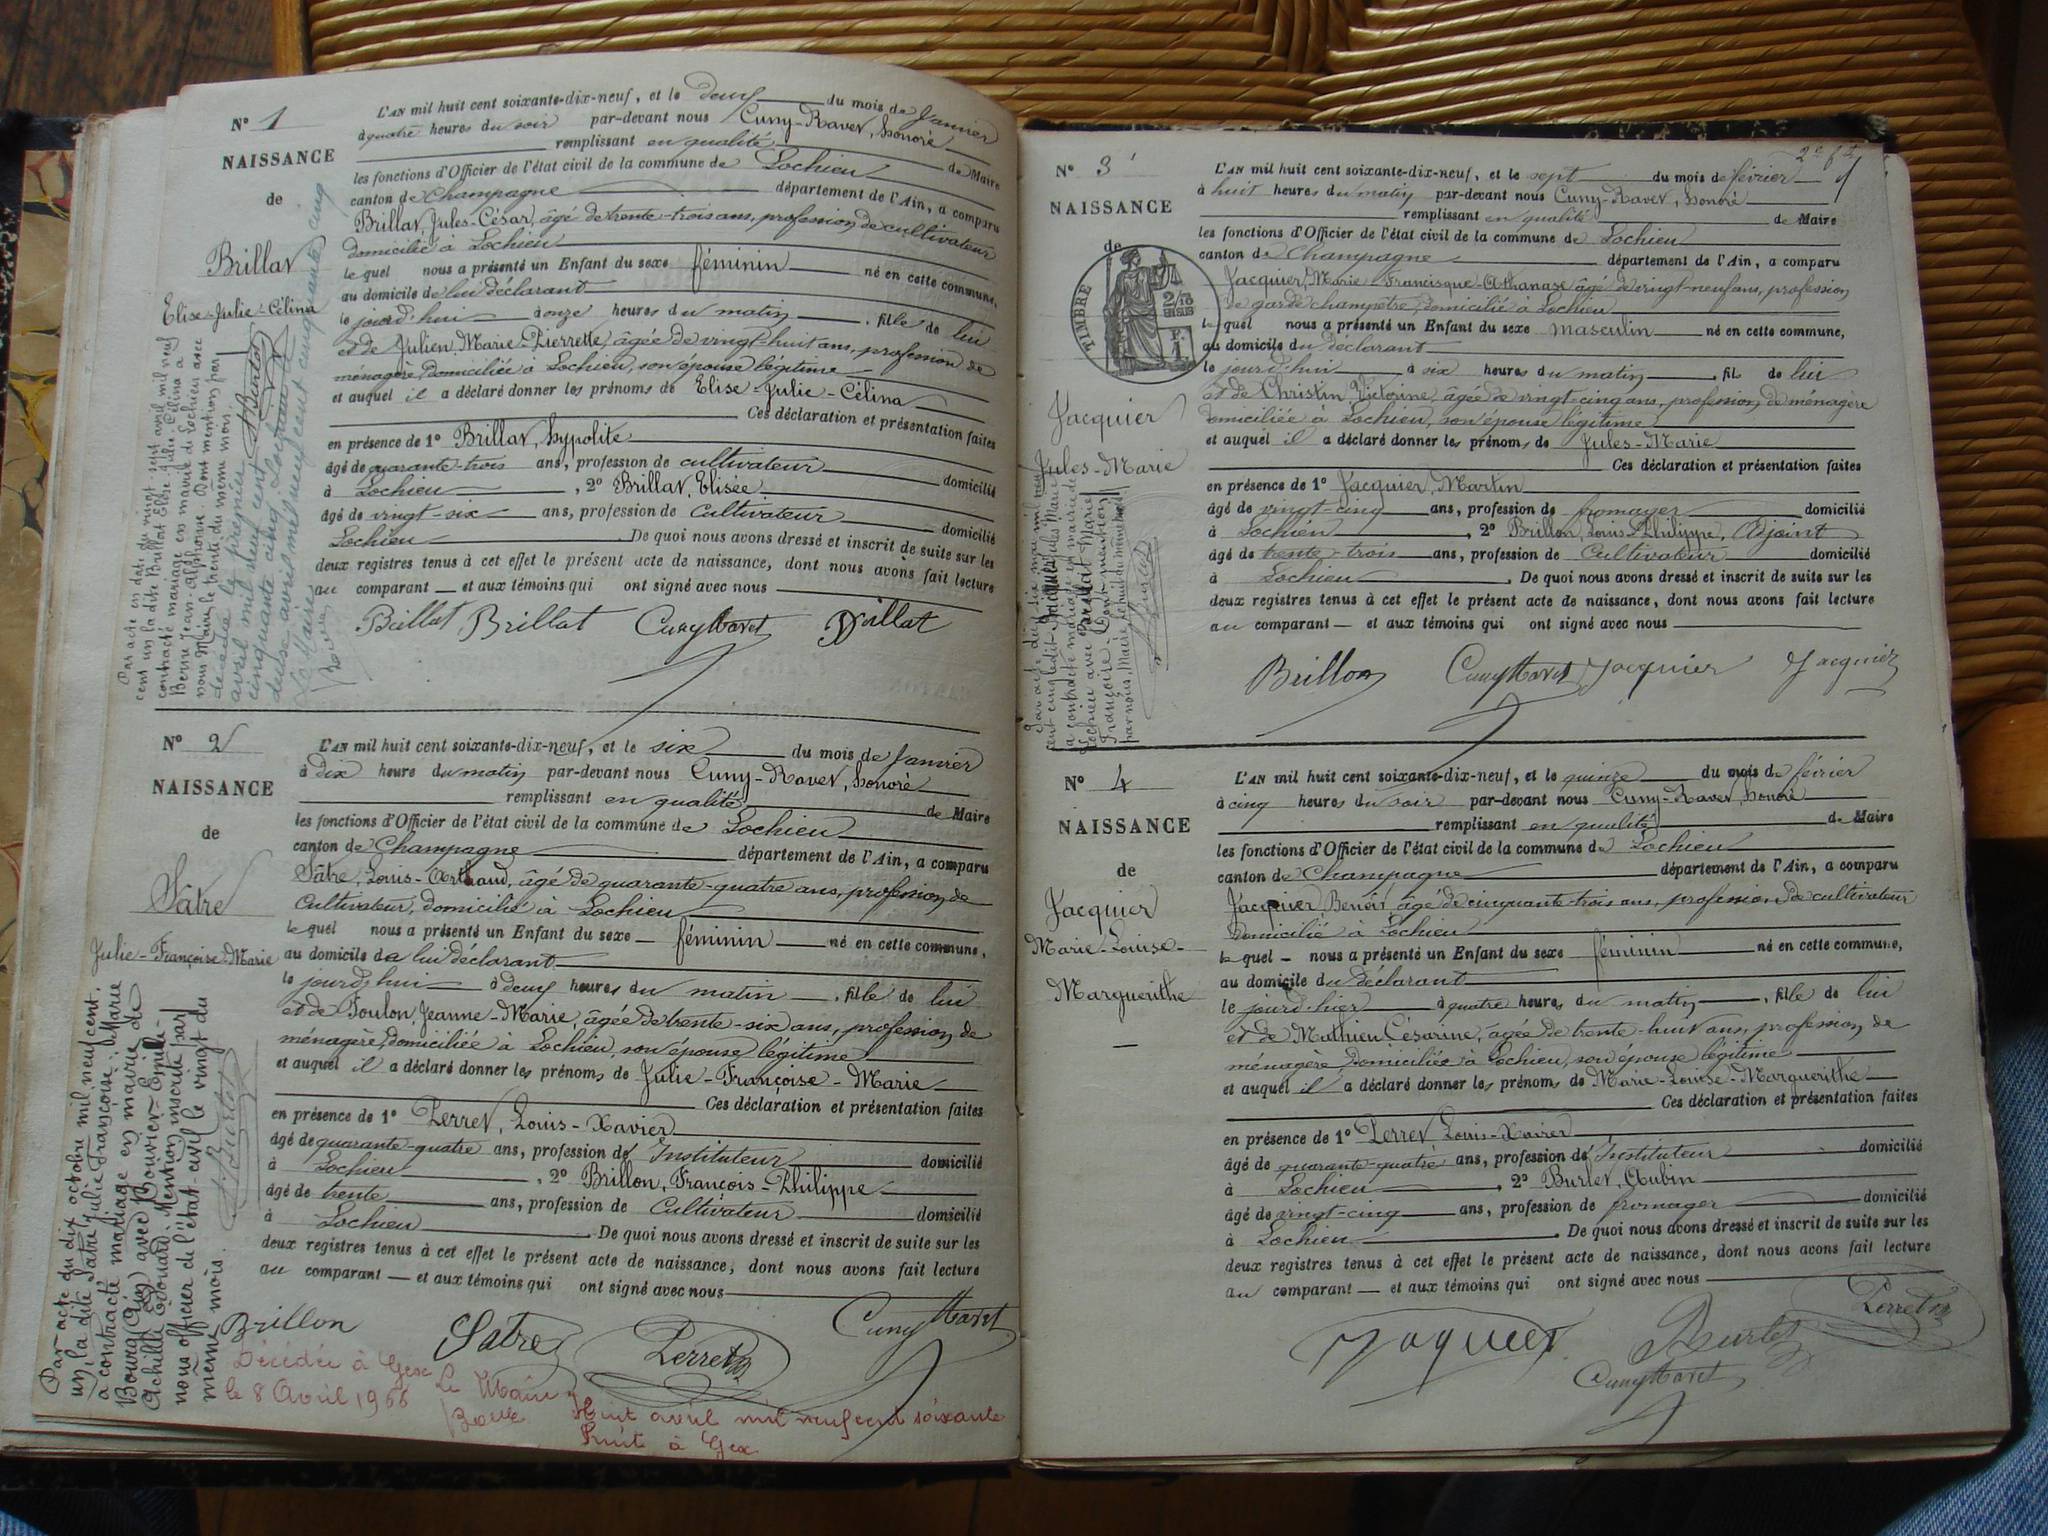 N° 1
NAISSANCE
de
Brillat
Elise-Julie-Célina
L'AN mil huit cent soixante-dix-neuf, et le deux du mois de Janvier
à quatre heures du soir par-devant nous Cuny-Ravet, Honoré
remplissant en qualité de Maire
les fonctions d'Officier de l'état civil de la commune de Lochieu
canton de Champagne département de l'Ain, a comparu
Brillat, Jules-César, âgé de trente-trois ans, profession de cultivateur
domicilié à Lochieu
le quel nous a présenté un Enfant du sexe féminin né en cette commune,
au domicile de lui déclarant
le jourd'hui à onze heures du matin, fille de lui
et de Julien, Marie-Pierrette, âgée de vingt-huit ans, profession de
ménagère, domiciliée à Lochieu, son épouse légitime
et auquel il a déclaré donner les prénoms de Elise-Julie-Célina
Ces déclaration et présentation faites
en présence de 1° Brillat, Hypolite
âgé de quarante-trois ans, profession de cultivateur domicilié
à Lochieu, 2° Brillat, Elisée
âgé de vingt-six ans, profession de cultivateur domicilié
Lochieu De quoi nous avons dressé et inscrit de suite sur les
deux registres tenus à cet effet le présent acte de naissance, dont nous avons fait lecture
au comparant — et aux témoins qui ont signé avec nous
Brillat Brillat Cuny Ravet Brillat
Par acte en date du vingt-sept avril mil neuf
cent un la dite Brillat Elise Julie Célina a
contracté mariage en mairie de Lochieu avec
Jean-Alphonse. Dont mention par
nous Maire le trente du même mois.
décédée le premier
avril mil neuf cent
cinquante cinq
deux avril mil neuf cent cinquante cinq
Le Maire
N° 2
NAISSANCE
de
Satre
Julie-Françoise-Marie
L'AN mil huit cent soixante-dix-neuf, et le six du mois de Janvier
à dix heure du matin par-devant nous Cuny-Ravet, Honoré
remplissant en qualité de Maire
les fonctions d'Officier de l'état civil de la commune de Lochieu
canton de Champagne département de l'Ain, a comparu
Satre, Louis-Arthaud, âgé de quarante-quatre ans, profession de
Cultivateur, domicilié à Lochieu
le quel nous a présenté un Enfant du sexe féminin né en cette commune,
au domicile de lui déclarant
le jourd'hui à deux heures du matin, fille de lui
et de Foulon, Jeanne-Marie, âgée de trente-six ans, profession de
ménagère, domiciliée à Lochieu, son épouse légitime
et auquel il a déclaré donner les prénoms de Julie-Françoise-Marie
Ces déclaration et présentation faites
en présence de 1° Perret, Louis-Xavier
âgé de quarante-quatre ans, profession de Instituteur domicilié
à Lochieu, 2° Brillon, François-Philippe
âgé de trente ans, profession de Cultivateur domicilié
à Lochieu De quoi nous avons dressé et inscrit de suite sur les
deux registres tenus à cet effet le présent acte de naissance, dont nous avons fait lecture
au comparant — et aux témoins qui ont signé avec nous
Brillon Satre Perret Cuny Ravet
Par acte du dix octobre mil neuf cent
un, la dite Satre Julie Françoise Marie
a contracté mariage en mairie de
Bourg (Ain) avec Bouvier Emile-
Achille Edouard. Mention inscrite par
nous officier de l'état-civil le vingt du
même mois.
Décédée à Gex
le 8 Avril 1968
Le Maire
Huit avril mil neuf cent soixante
huit à Gex
2e ft
N° 3
NAISSANCE
de
TIMBRE
Jacquier
Jules-Marie
L'AN mil huit cent soixante-dix-neuf, et le sept du mois de février
à huit heures du matin par-devant nous Cuny-Ravet, Honoré
remplissant en qualité de Maire
les fonctions d'Officier de l'état civil de la commune de Lochieu
canton de Champagne département de l'Ain, a comparu
Jacquier, Marie-Francisque-Athanase âgé de vingt-neuf ans, profession
de garde champêtre, domicilié à Lochieu
le quel nous a présenté un Enfant du sexe masculin né en cette commune,
au domicile du déclarant
le jourd'hui à six heures du matin, fils de lui
et de Christin, Victorine, âgée de vingt-cinq ans, profession de ménagère
domiciliée à Lochieu, son épouse légitime
et auquel il a déclaré donner les prénoms de Jules-Marie
Ces déclaration et présentation faites
en présence de 1° Jacquier, Martin
âgé de vingt-cinq ans, profession de fromager domicilié
à Lochieu, 2° Brillon, Louis-Philippe, Adjoint
âgé de trente-trois ans, profession de Cultivateur domicilié
à Lochieu. De quoi nous avons dressé et inscrit de suite sur les
deux registres tenus à cet effet le présent acte de naissance, dont nous avons fait lecture
au comparant — et aux témoins qui ont signé avec nous
Brillon Cuny Ravet Jacquier Jacquier
Par acte du dix mai mil neuf
cent cinq ledit Jacquier Jules Marie
a contracté mariage en mairie de
Lochieu avec Brillat Marie
Françoise. Dont mention
par nous, Maire, le huit du même mois
N° 4
NAISSANCE
de
Jacquier
Marie-Louise-
Marguerithe
L'AN mil huit cent soixante-dix-neuf, et le quinze du mois de février
à cinq heures du soir par-devant nous Cuny-Ravet, Honoré
remplissant en qualité de Maire
les fonctions d'Officier de l'état civil de la commune de Lochieu
canton de Champagne département de l'Ain, a comparu
Jacquier Benoit âgé de cinquante-trois ans, profession de cultivateur
domicilié à Lochieu
le quel — nous a présenté un Enfant du sexe féminin né en cette commune,
au domicile du déclarant
le jourd'hier à quatre heures du matin, fille de lui
et de Mathieu Césarine, âgée de trente-huit ans, profession de
ménagère, domiciliée à Lochieu, son épouse légitime
et auquel il a déclaré donner les prénoms de Marie-Louise-Marguerithe
Ces déclaration et présentation faites
en présence de 1° Perret, Louis-Xavier
âgé de quarante-quatre ans, profession de Instituteur domicilié
à Lochieu, 2° Burlet, Aubin
âgé de vingt-cinq ans, profession de fromager domicilié
à Lochieu. De quoi nous avons dressé et inscrit de suite sur les
deux registres tenus à cet effet le présent acte de naissance, dont nous avons fait lecture
au comparant — et aux témoins qui ont signé avec nous
Jaquier Burlet Perret
Cuny Ravet